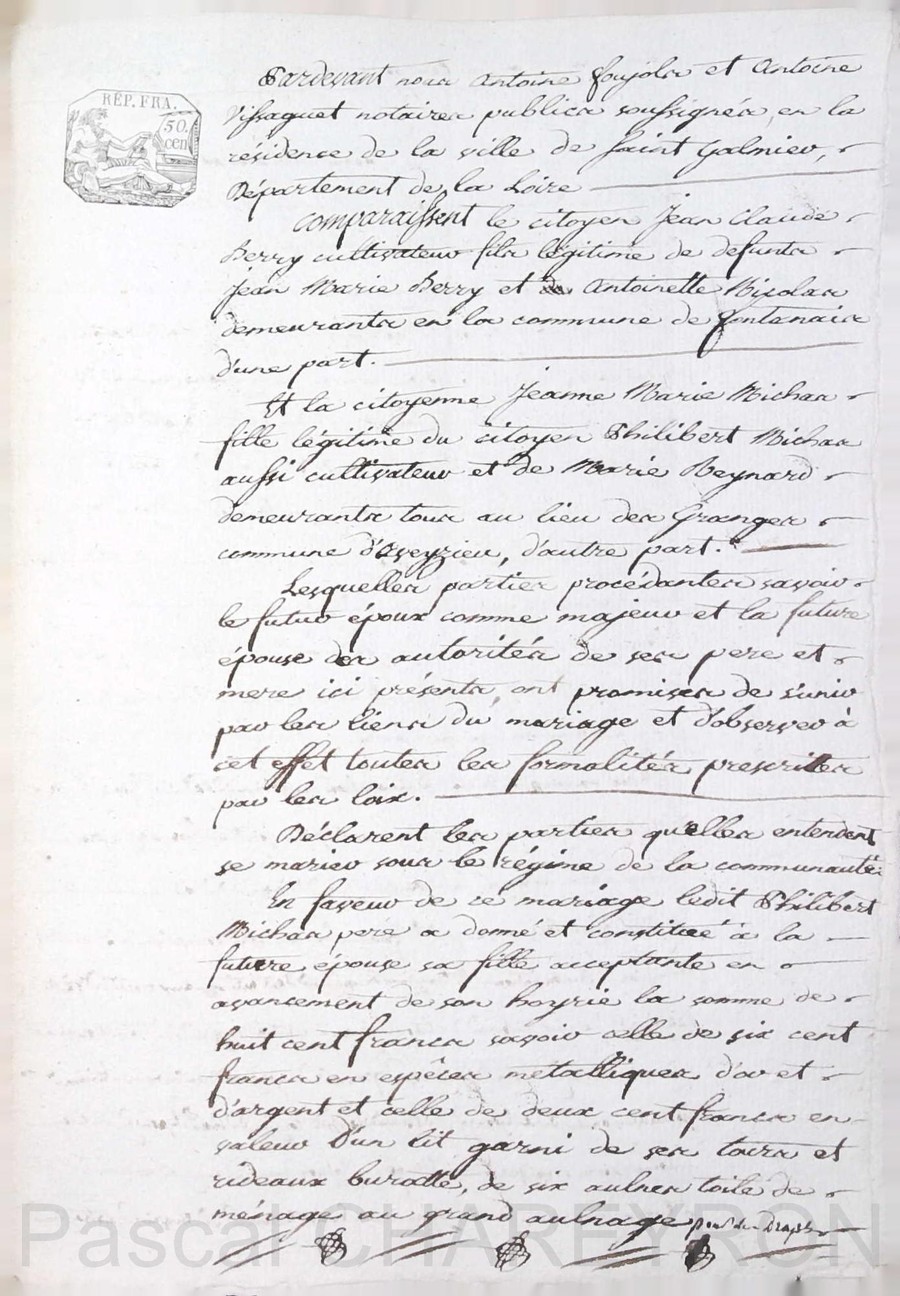 RÉP. FRA.
50.
cen
Pardevant nous Antoine Foujols et Antoine
Vissaguet notaires publics soussignés en la
résidence de la ville de Saint Galmier,
Département de la Loire
Comparaissent le citoyen Jean Claude
Berry cultivateur fils légitime de defunts
Jean Marie Berry et Antoinette Nigolas
demeurants en la commune de fontenais
d'une part.
Et la citoyenne Jeanne Marie Michas
fille légitime du citoyen Philibert Michas
aussi cultivateur et de Marie Reynard
demeurants tous au lieu des Granges
commune d'Aveyzieu, d'autre part.
Lesquelles parties procédantes savoir
le futur époux comme majeur et la future
épouse des autorités de ses pere et
mere ici présents, ont promises de s'unir
par les liens du mariage et d'observer à
cet effet toutes les formalités prescrites
par les loix.
Déclarent les parties qu'elles entendent
se marier sous le régime de la communauté.
En faveur de ce mariage ledit Philibert
Michas pere a donné et constitué à la
future épouse sa fille acceptante en
avancement de son hoyrie la somme de
huit cent francs savoir celle de six cent
francs en espèces métalliques d'or et
d'argent et celle de deux cent francs en
valeur d'un lit garni de ses tours et
rideaux buratte, de six aulnes toile de
ménage au grand aulnage pour des draps
Pascal CHAREYRON